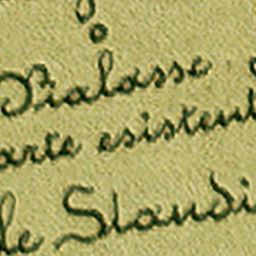 Pialasse
arte esistent
le Standi